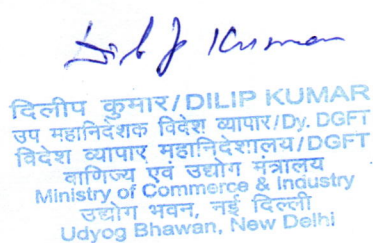 Dilip Kumar
दिलीप कुमार/DILIP KUMAR
उप महानिदेशक विदेश व्यापार/Dy. DGFT
विदेश व्यापार महानिदेशालय/DGFT
वाणिज्य एवं उद्योग मंत्रालय
Ministry of Commerce & Industry
उद्योग भवन, नई दिल्ली
Udyog Bhawan, New Delhi